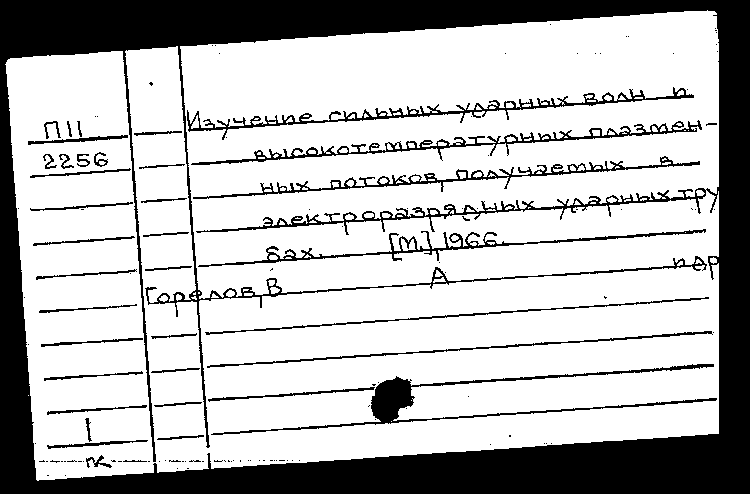 П11
2256
Изучение сильных ударных волн и
высокотемпературных плазмен-
ных потоков, получаемых в
электроразрядных ударных тру
бах. [М.], 1966.
Горелов, В А и др
1